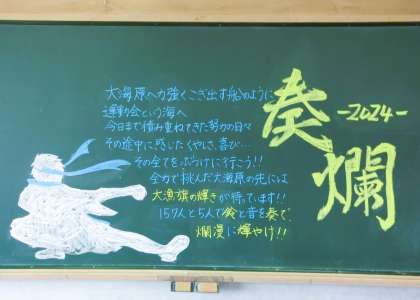 奏爛
-2024-
大海原へ力強くこぎ出す船のように
運動会という海へ
今日まで積み重ねてきた努力の日々
その途中に感じたくやしさ、喜び…
その全てをぶつけに行こう!!
全力で挑んだ大海原の先には
大漁旗の輝きが待っています!!
157人と5人で絵と音を奏で、
爛漫に輝やけ!!